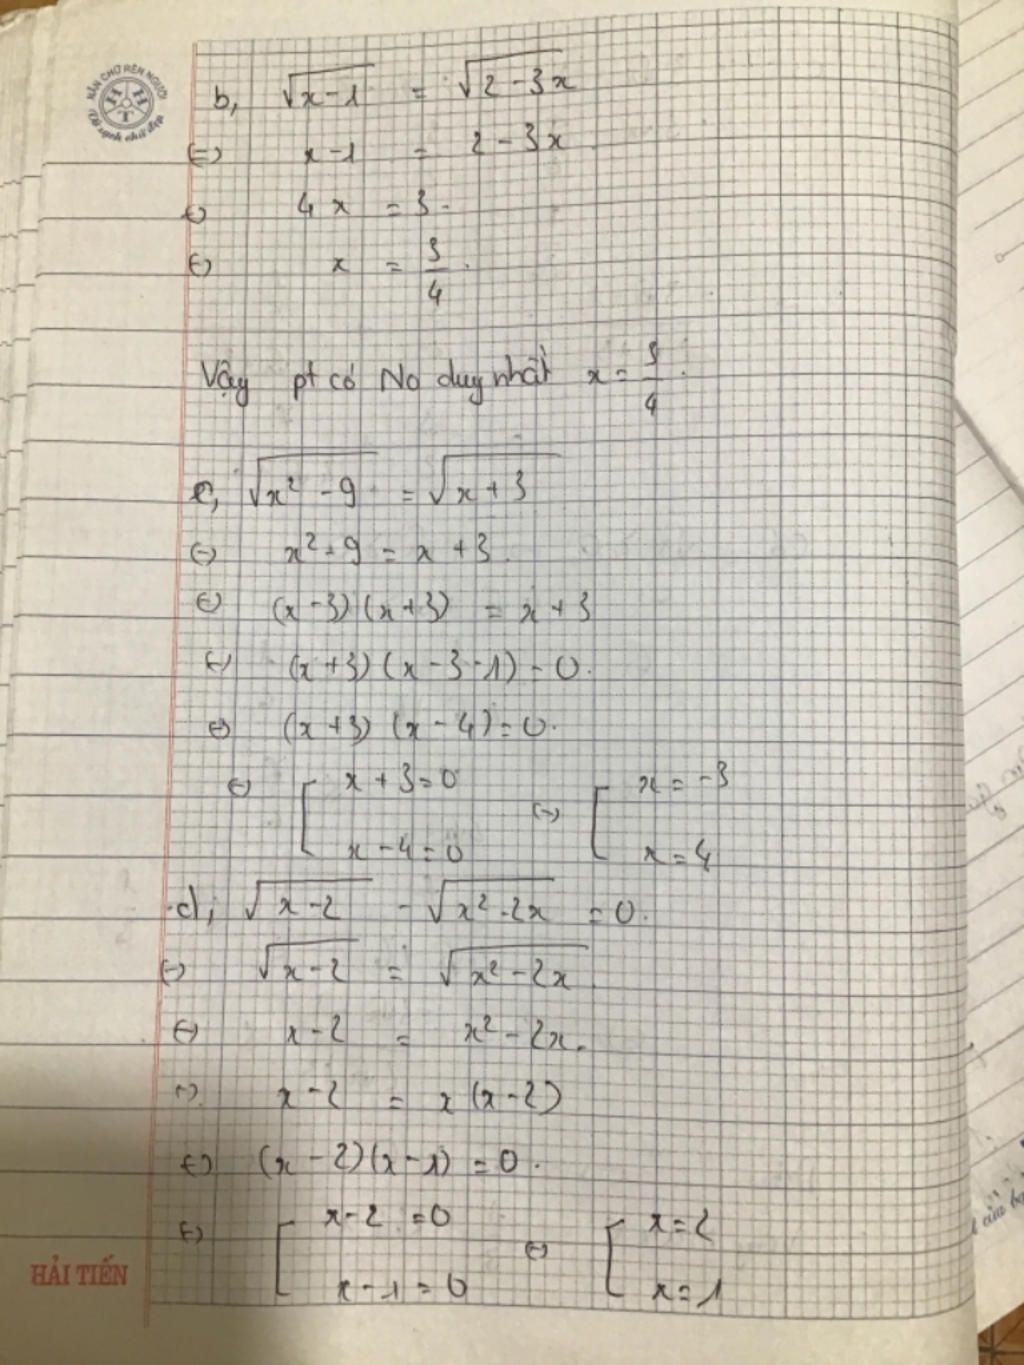 NẮN CHỮ RÈN NGƯỜI
HHT
Vở sạch chữ đẹp
b, √(x-1) = √(2-3x)
(=) x-1 = 2-3x
(=) 4x = 3.
(=) x = 3/4.
Vậy pt có No duy nhất x = 3/4.
c, √(x²-9) = √(x+3)
(=) x²-9 = x+3.
(=) (x-3)(x+3) = x+3
(=) (x+3)(x-3-1) = 0.
(=) (x+3)(x-4) = 0.
(=) [x+3=0 (=) [x=-3
x-4=0 x=4
d, √(x-2) - √(x²-2x) = 0.
(=) √(x-2) = √(x²-2x)
(=) x-2 = x²-2x.
(=) x-2 = x(x-2)
(=) (x-2)(x-1) = 0.
(=) [x-2=0 (=) [x=2
x-1=0 x=1
HẢI TIẾN